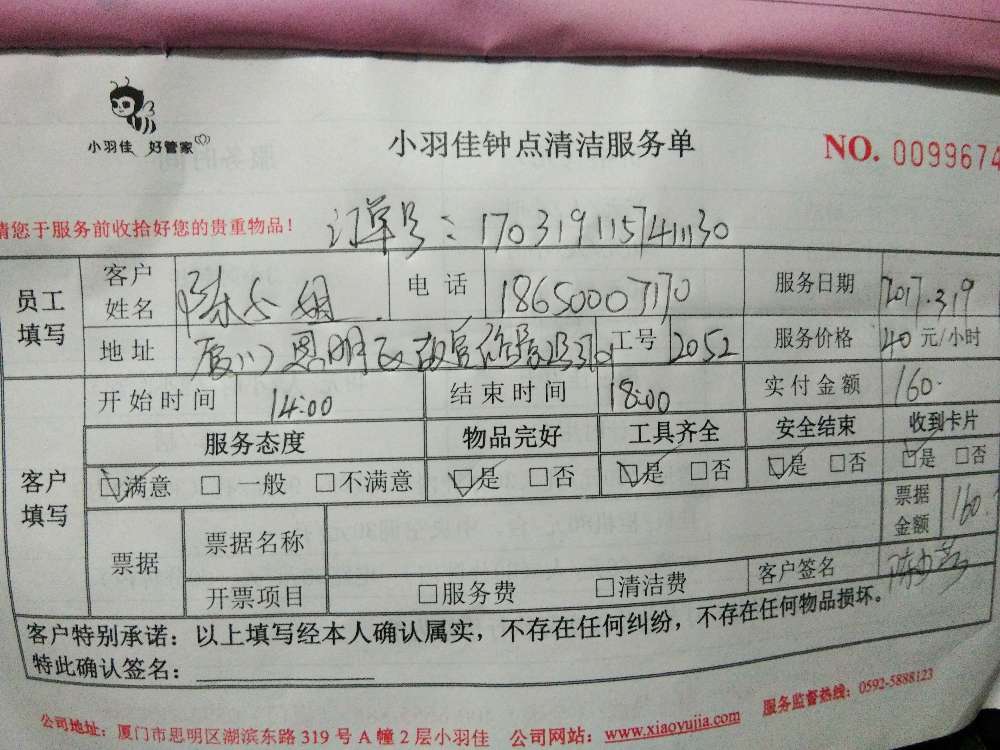 小羽佳 好管家
小羽佳钟点清洁服务单
NO. 0099674
请您于服务前收拾好您的贵重物品！
订单号：1703191157411130
员工填写 客户姓名 陈小姐 电话 18650007170 服务日期 2017.3.19
地址 厦门思明区 工号 2052 服务价格 40元/小时
客户填写 开始时间 14:00 结束时间 18:00 实付金额 160.
服务态度 物品完好 工具齐全 安全结束 收到卡片
☑满意 □一般 □不满意 ☑是 □否 ☑是 □否 ☑是 □否 ☑是 □否
票据 票据名称 票据金额 160.
开票项目 □服务费 □清洁费 客户签名
客户特别承诺：以上填写经本人确认属实，不存在任何纠纷，不存在任何物品损坏。
特此确认签名：
公司地址：厦门市思明区湖滨东路319号A幢2层小羽佳 公司网站：www.xiaoyujia.com 服务监督热线：0592-5888123